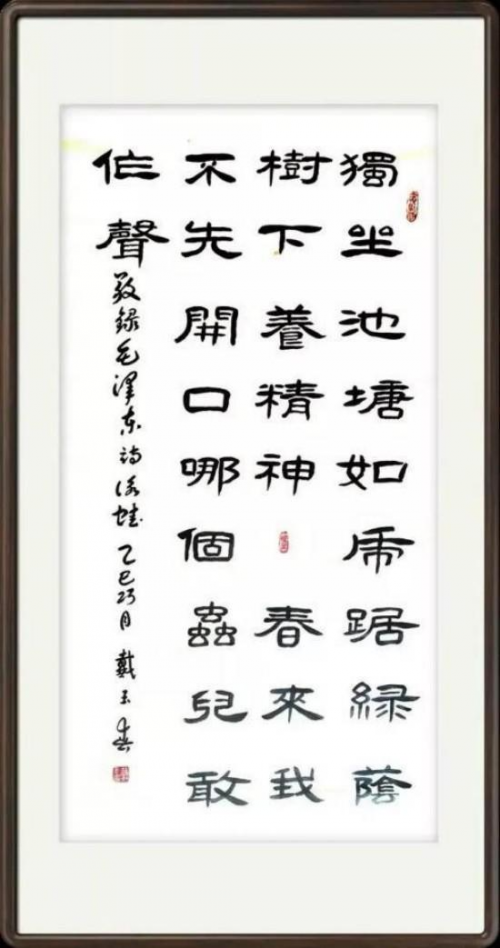 獨坐池塘如虎踞綠蔭
樹下養精神 春來我
不先開口哪個蟲兒敢
作聲 敬録毛澤东诗詠蛙 乙巳巧月 戴玉